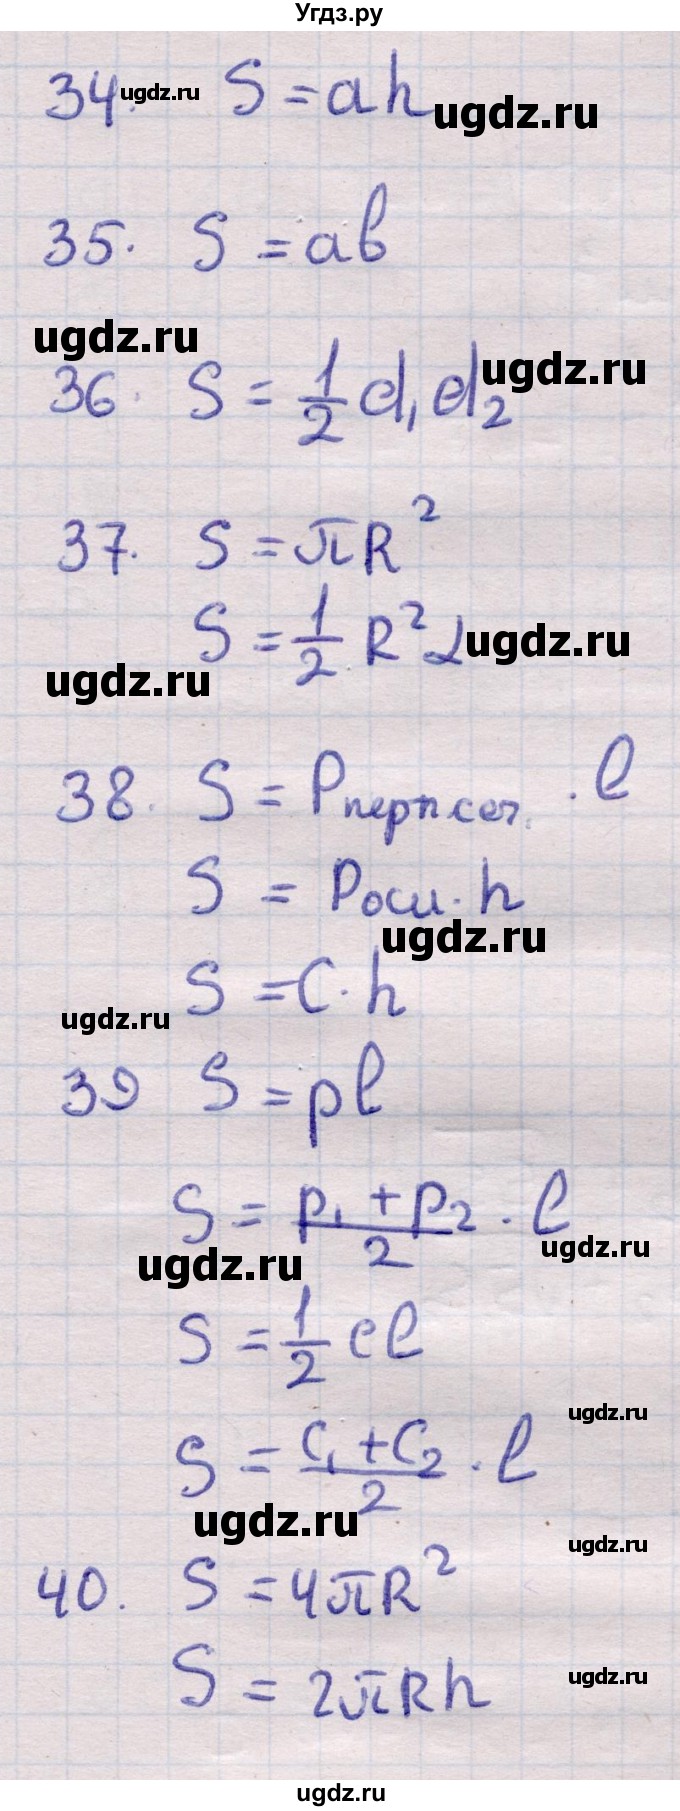 Угдз.ру
34. S = ah
ugdz.ru ugdz.ru
35. S = ab
ugdz.ru ugdz.ru
36. S = 1/2 d₁ d₂
37. S = πR²
S = 1/2 R² α
ugdz.ru ugdz.ru
38. S = Pперп.сеч. · l
S = Pосн · h
ugdz.ru
S = C · h
ugdz.ru
39 S = pl
S = (p₁ + p₂)/2 · l
ugdz.ru ugdz.ru
S = 1/2 cl
ugdz.ru
S = (C₁ + C₂)/2 · l
ugdz.ru ugdz.ru
40. S = 4πR²
S = 2πRh
ugdz.ru
ugdz.ru